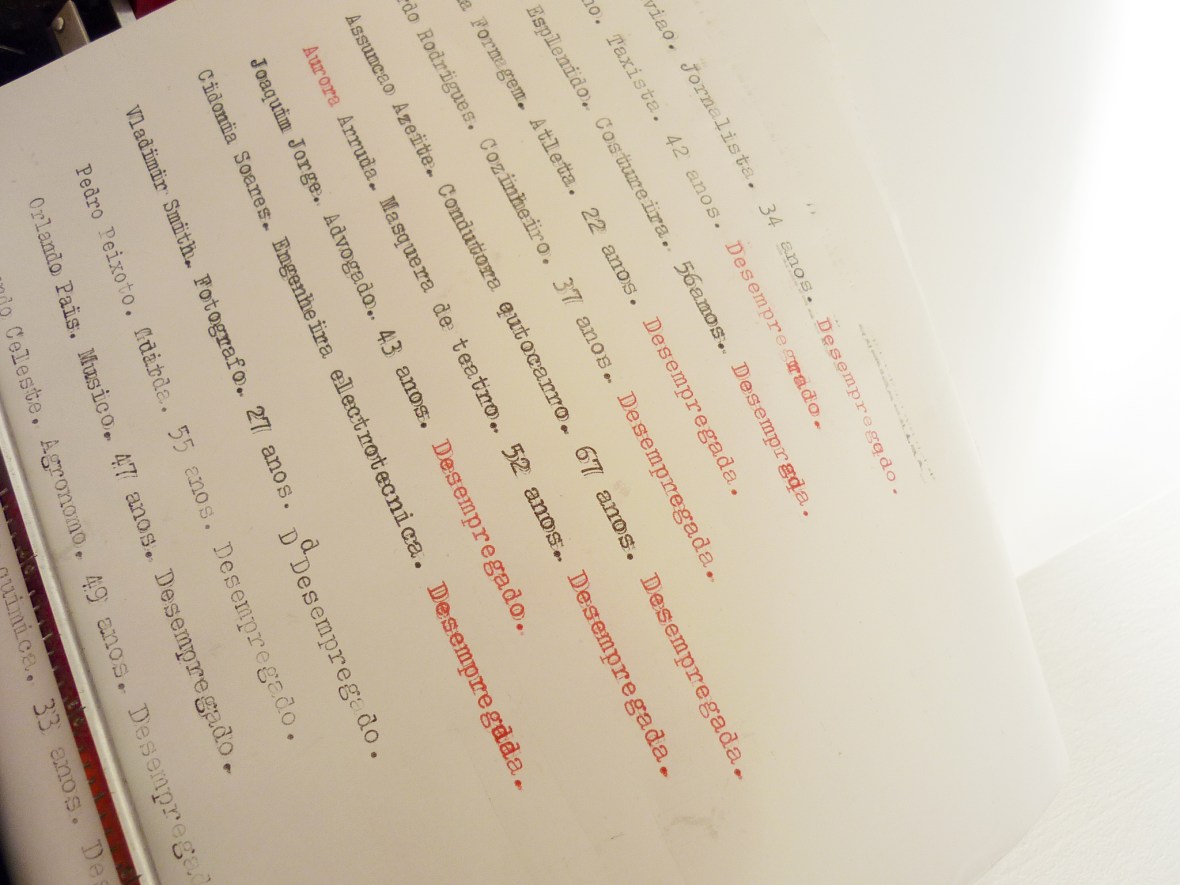 viao. Jornalista. 34 anos. Desempregado.
no. Taxista. 42 anos. Desempregrado.
Esplenido. Costureira. 56anos. Desemprgda.
a Formagem. Atleta. 22 anos. Desempregada.
rdo Rodrigues. Cozinheiro. 37 anos. Desempregada.
Assuncao Azeite. Condutora qutocarro. 67 anos. Desempregada.
Aurora Arruda. Masquera de teatro. 52 anos. Desempregada.
Joaquim Jorge. Advogado. 43 anos. Desempregado.
Cidonia Soares. Engenheira electrotecnica. Desempregdda.
Vladimir Smith. Fotografo. 27 anos. DdDesempregado.
Pedro Peixoto. 55 anos. Desempregado.
Orlando Pais. Musico. 47 anos. Desempregado.
ndo Celeste. Agronomo. 49 anos. Desempregad
quimica. 33 anos. Des